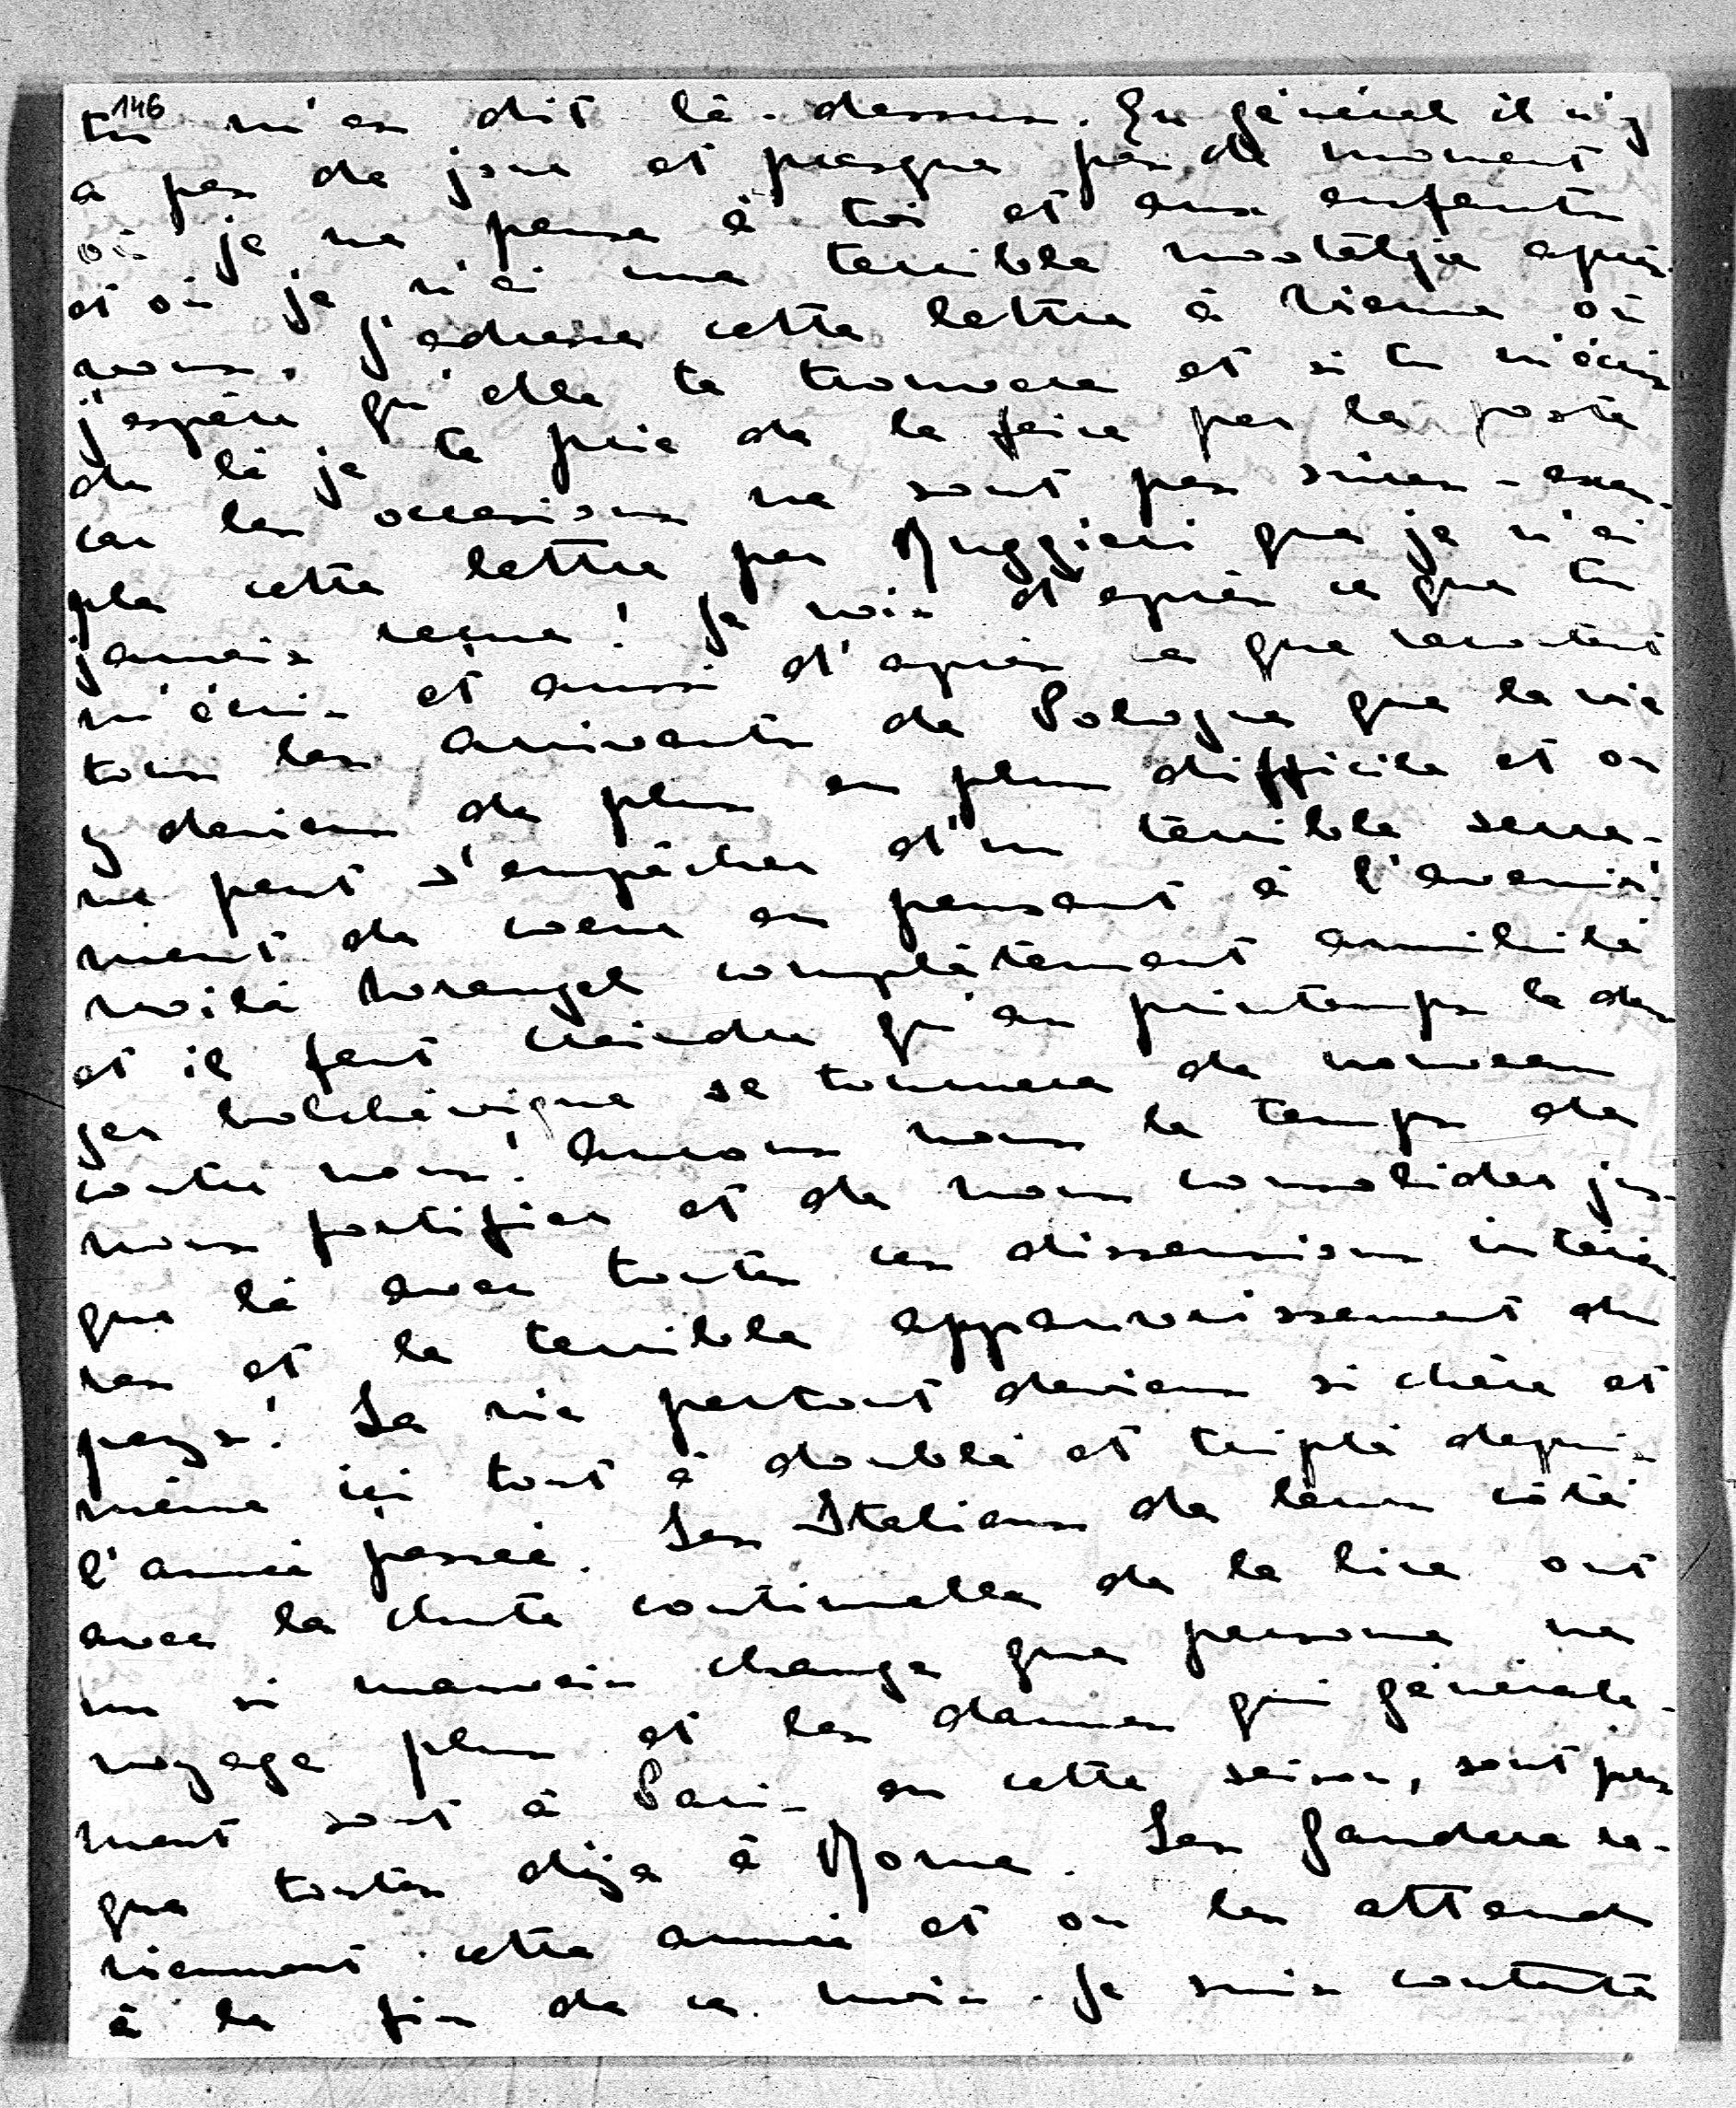 146
tu m'as dit là-dessus. En général il n'y
a pas de jour et presque pas de moment
où je ne pense à toi et aux enfants
et où je n'ai une terrible nostalgie après
vous. J'adresse cette lettre à Vienne où
j'espère qu'elle te trouvera et si tu m'écris
de là je te prie de le faire par la poste
car les occasions ne sont pas sûres - exem-
ple cette lettre par Ruggieri que je n'ai
jamais reçue! Je vois d'après ce que tu
m'écris et aussi d'après ce que racontent
tous les arrivants de Pologne que la vie
y deviens de plus en plus difficile et on
ne peut s'empêcher d'un terrible serre-
ment de coeur en pensant à l'avenir!
voilà Wrangel complètement annihilé
et il faut craindre qu'au printemps le dan
ger bolchévique se tournera de nouveau
contre nous! Aurons nous le temps de
nous fortifier et de nous consolider jus-
que là avec toutes ces dissensions intérieu-
res et le terrible appauvrissement du
pays! La vie partout deviens si chère et
même içi tout à doublé et triplé depuis
l'année passée. Les Italiens de leur côté
avec la chute continuelle de la lire ont
un si mauvais change que personne ne
voyage plus et les dames qui générale-
ment sont à Paris en cette saison, sont pres
que toutes déja à Rome. Les Gandera re-
viennent cette année et on les attends
à la fin de ce mois. Je suis contente